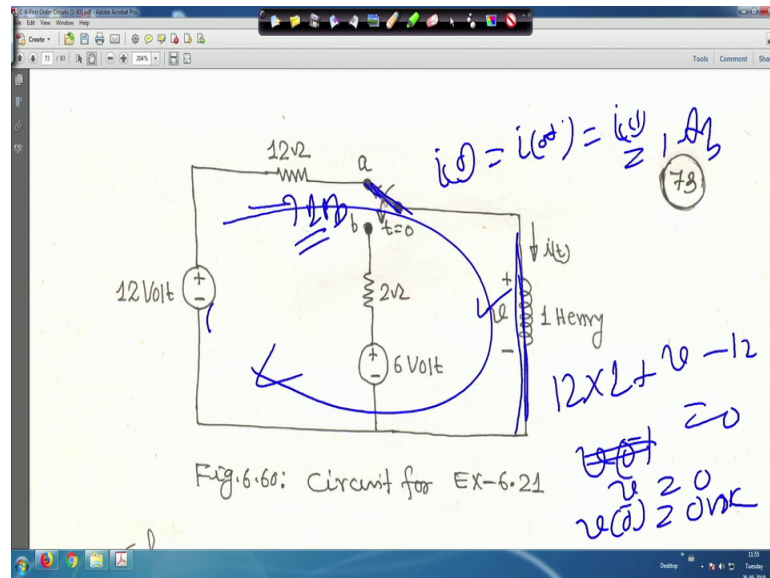 C-6-First Order Circuits (1-83).pdf - Adobe Acrobat Pro
File Edit View Window Help
Create
73 / 83
204%
Tools Comment
i(0⁻) = i(0⁺) =
73
12Ω
a
b
t=0
i(t)
12 Volt
+
-
2Ω
+
-
6 Volt
+
v
-
1 Henry
12×1 + v - 12
= 0
v = 0
v(0⁻) = 0 volt
Fig.6.60: Circuit for EX-6.21
Desktop
13:55
Tuesday